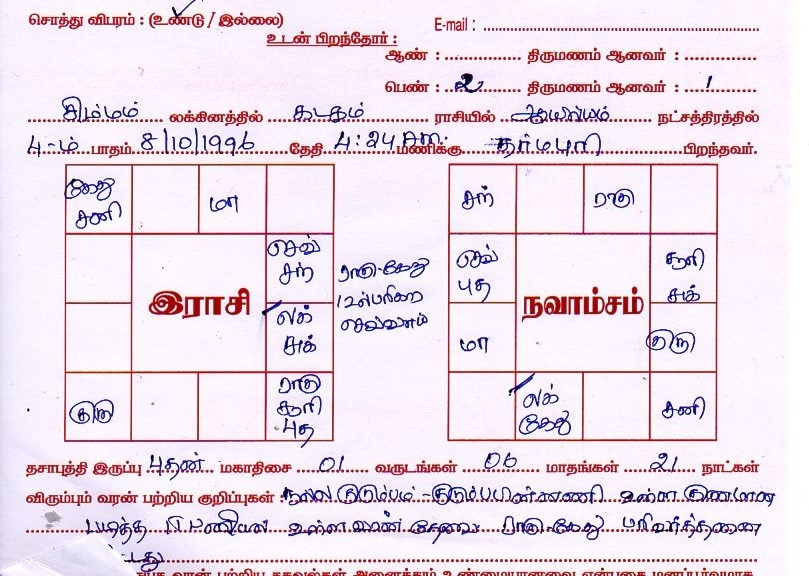 சொத்து விபரம் : (உண்டு / இல்லை)
E-mail :
உடன் பிறந்தோர் :
ஆண் : திருமணம் ஆனவர் :
பெண் : 2 திருமணம் ஆனவர் : 1
சிம்மம் லக்கினத்தில் கடகம் ராசியில் ஆயில்யம் நட்சத்திரத்தில்
4-ம் பாதம் 8/10/1996 தேதி 4:24 AM மணிக்கு தர்மபுரி பிறந்தவர்.
கேது சனி
மா
செவ் சந்
இராசி
லக் சுக்
குரு
ராகு சூரி புத
ராகு-கேது
செவ்வாய்
சந்
ராகு
செவ் புத
சூரி சுக்
நவாம்சம்
மா
குரு
லக் கேது
சனி
தசாபுத்தி இருப்பு புதன் மகாதிசை 01 வருடங்கள் 06 மாதங்கள் 21 நாட்கள்
விரும்பும் வரன் பற்றிய குறிப்புகள் : நல்ல குடும்பம் - குடும்ப பின்னணி உள்ள
படித்த உள்ள தேவை ராகு-கேது பரிவர்த்தனை
வரன் பற்றிய தகவல்கள் அனைத்தும் உண்மையானவை என்பதை மனப்பூர்வமாக